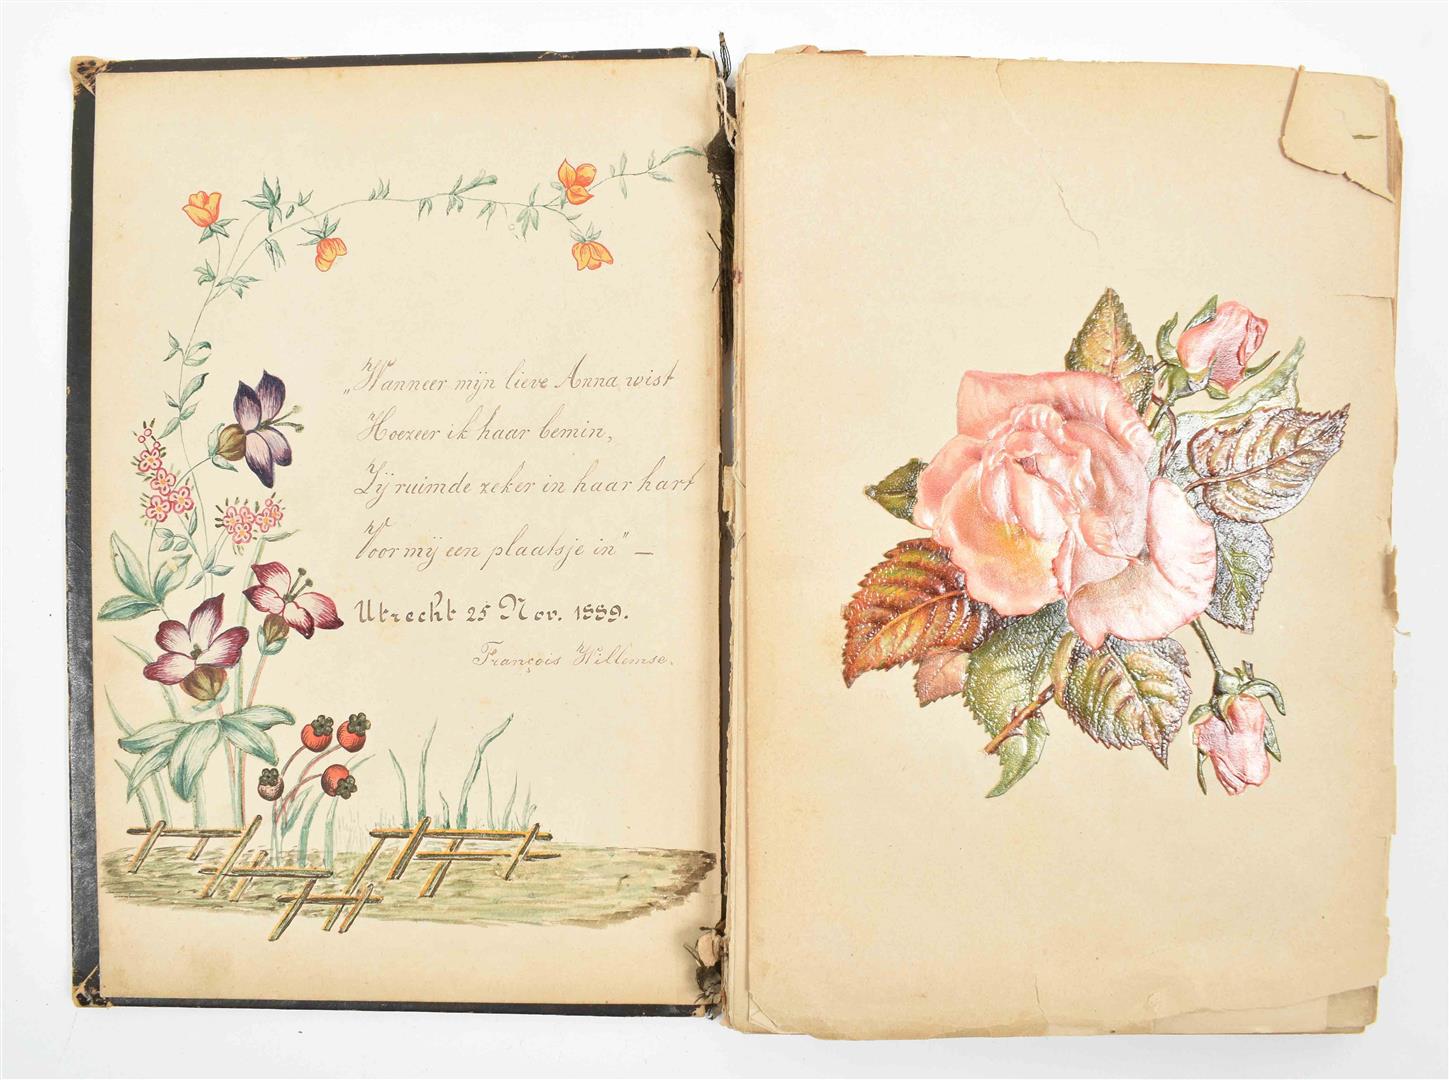 „Wanneer mijn lieve Anna wist
Hoezeer ik haar bemin,
Zij ruimde zeker in haar hart
Voor mij een plaatsje in" —
Utrecht 25 Nov. 1889.
François Willemse.